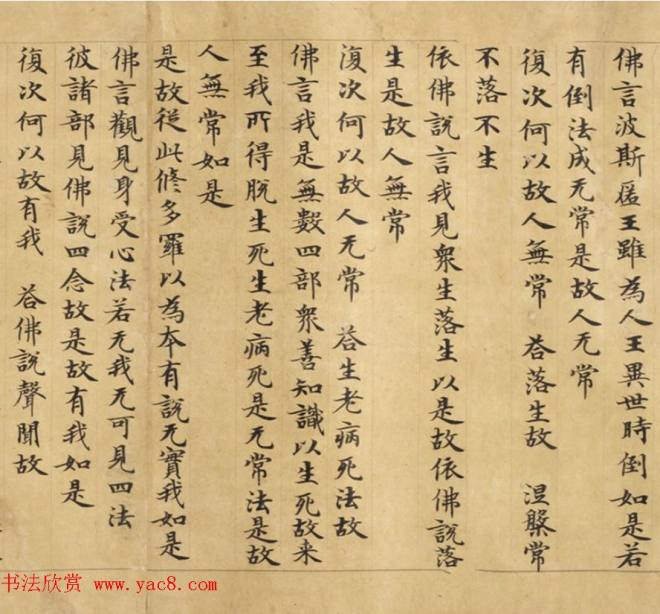 佛言波斯匿王雖為人王異世時倒如是若
有倒法成无常是故人无常
復次何以故人無常　荅落生故　涅槃常
不落不生
依佛說言我見衆生落生以是故依佛說落
生是故人無常
復次何以故人无常　荅生老病死法故
佛言我是無數四部衆善知識以生死故来
至我所得脫生死生老病死是无常法是故
人無常如是
是故從此修多羅以為本有說无實我如是
佛言觀見身受心法若无我无可見四法
彼諸部見佛說四念故是故有我如是
復次何以故有我　荅佛說聲聞故
书法欣赏 www.yac8.com